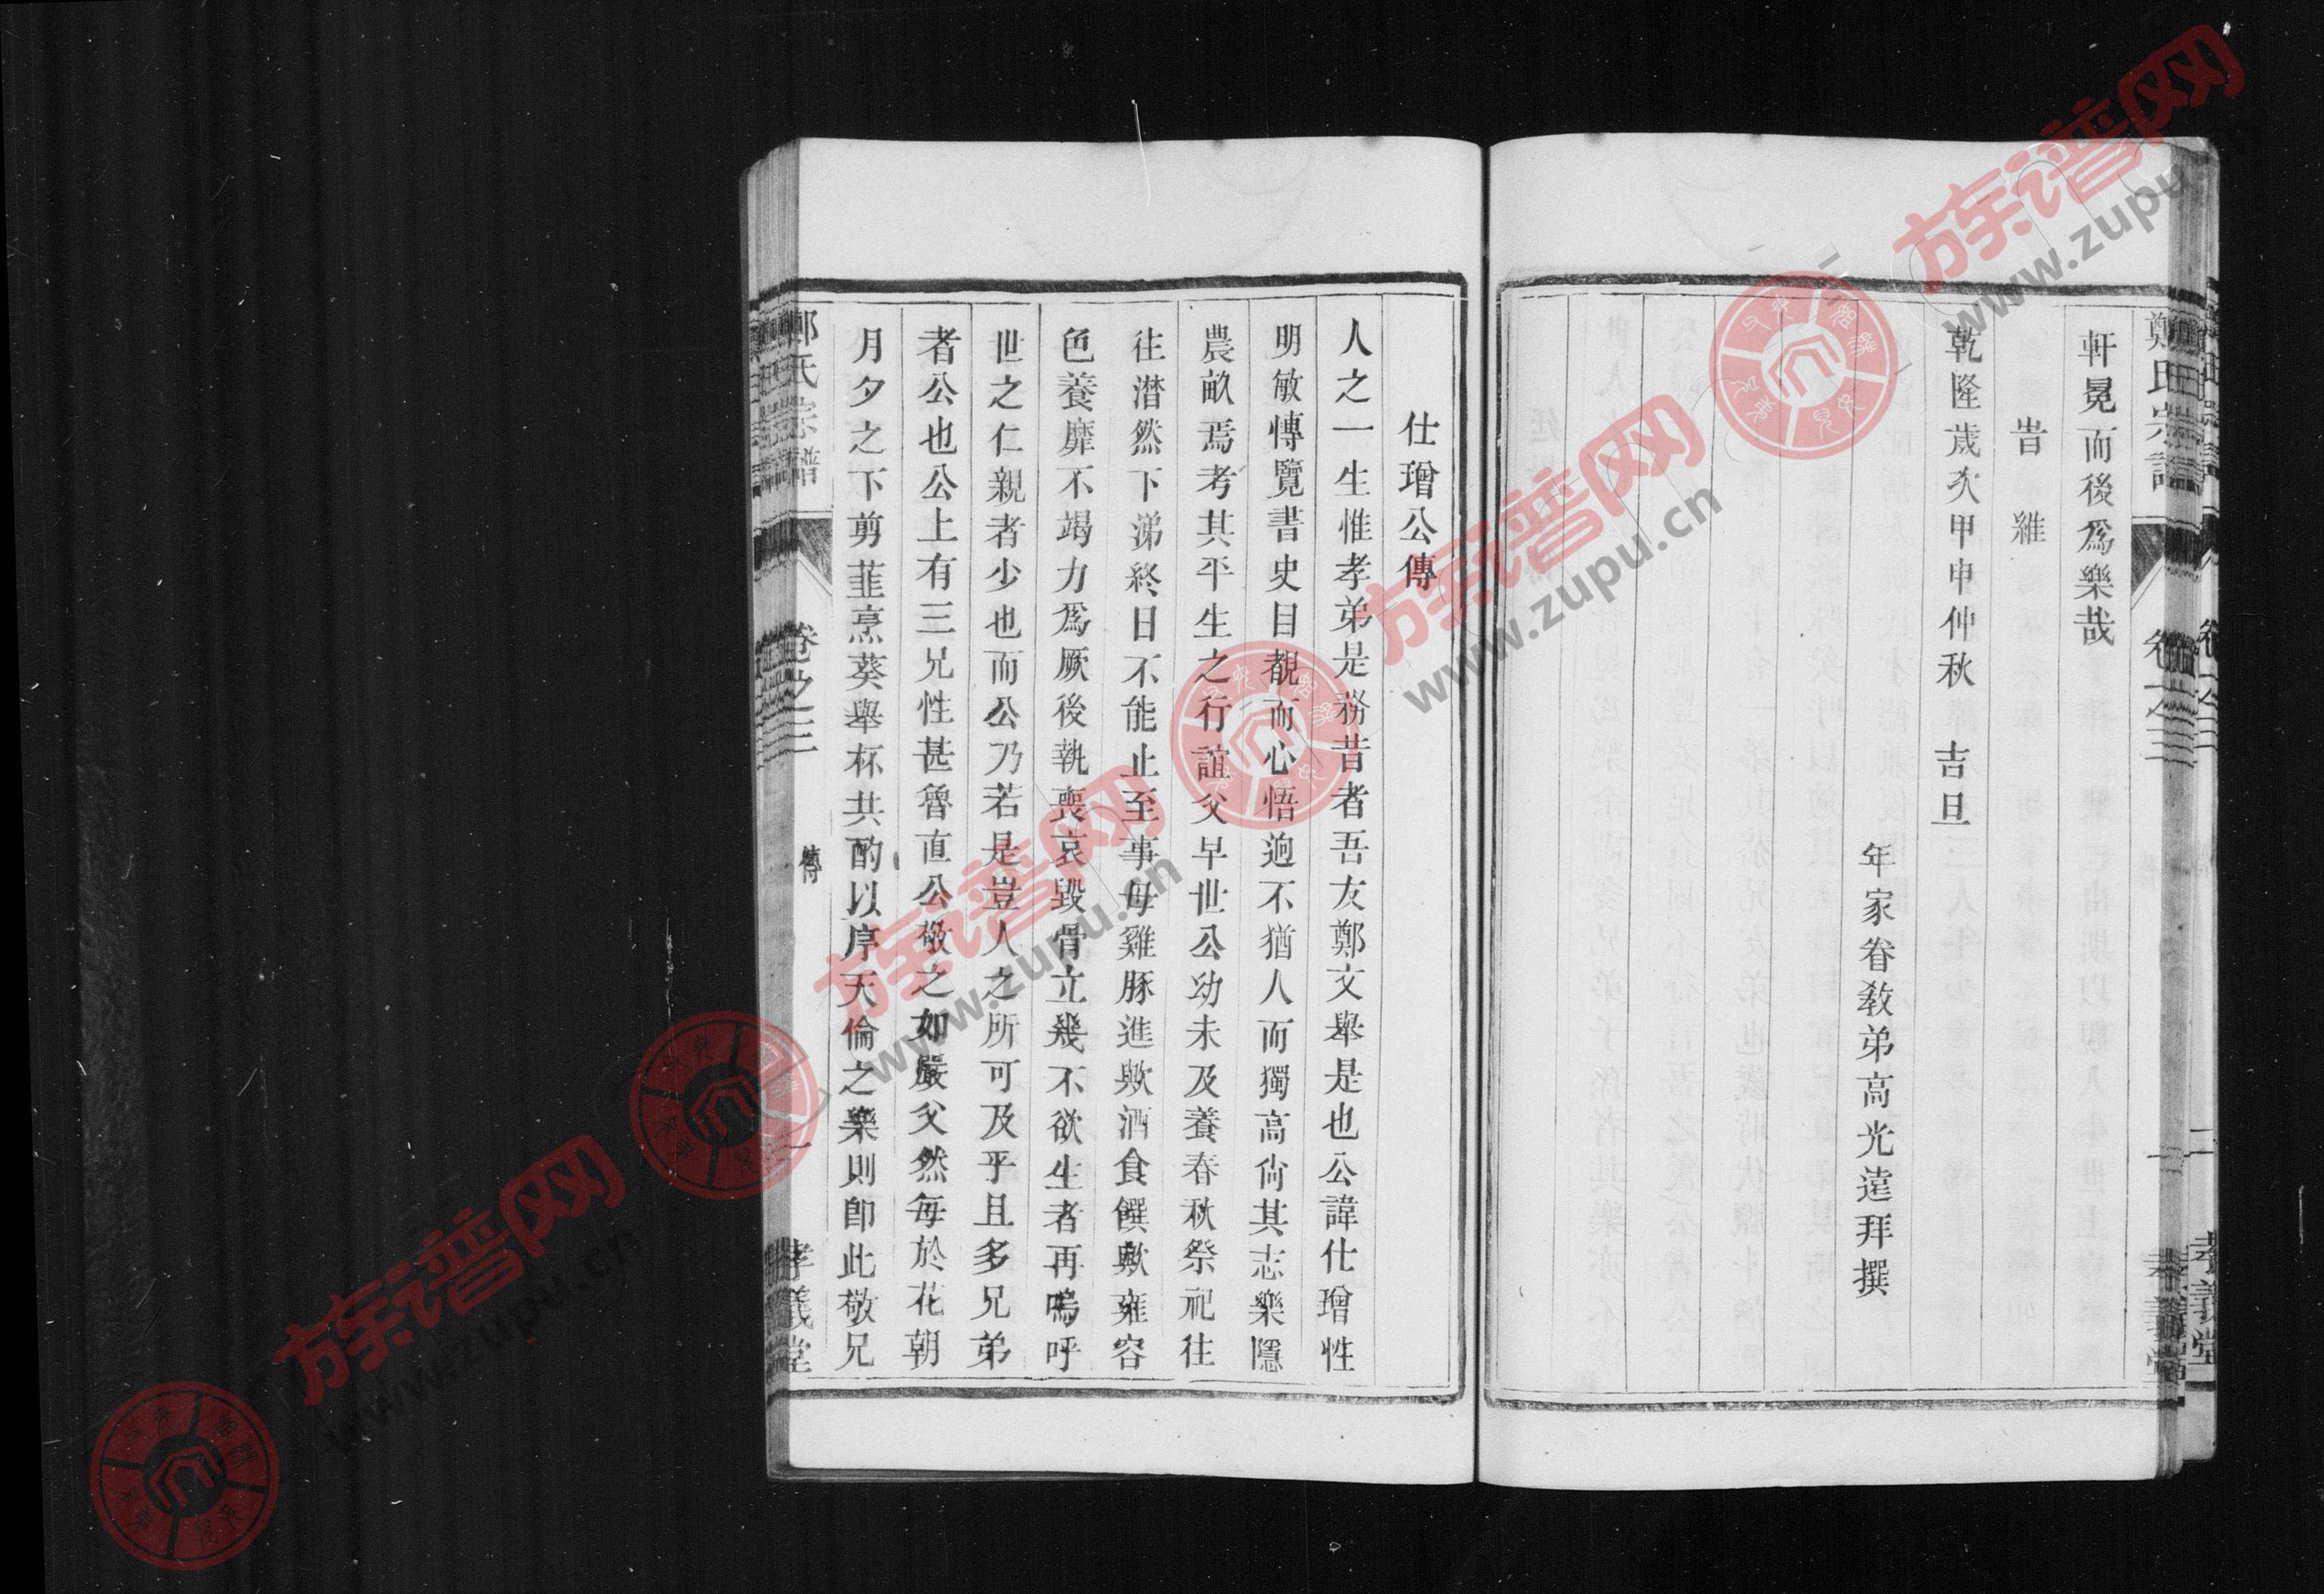 鄭氏宗譜
卷之三
孝義堂
軒冕而後爲樂哉
旹維
乾隆歲次甲申仲秋 吉旦
年家眷教弟高光遠拜撰
仕璔公傳
人之一生惟孝弟是務昔者吾友鄭文舉是也公諱仕璔性
明敏慱覽書史目覩而心悟逈不猶人而獨高尙其志樂隱
農畝焉考其平生之行誼父早世公幼未及養春秋祭祀往
往潸然下涕終日不能止至事母雞豚進歟酒食饌歟雍容
色養靡不竭力爲厥後執喪哀毀骨立幾不欲生者再嗚呼
世之仁親者少也而公乃若是豈人之所可及乎且多兄弟
者公也公上有三兄性甚魯直公敬之如嚴父然每於花朝
月夕之下剪韮烹葵舉杯共酌以序天倫之樂則卽此敬兄
鄭氏宗譜
卷之三
傳
一
孝義堂
族谱网
www.zupu.cn
族谱网
www.zupu.cn
族谱网
www.zupu.cn
族谱网
www.zupu.cn